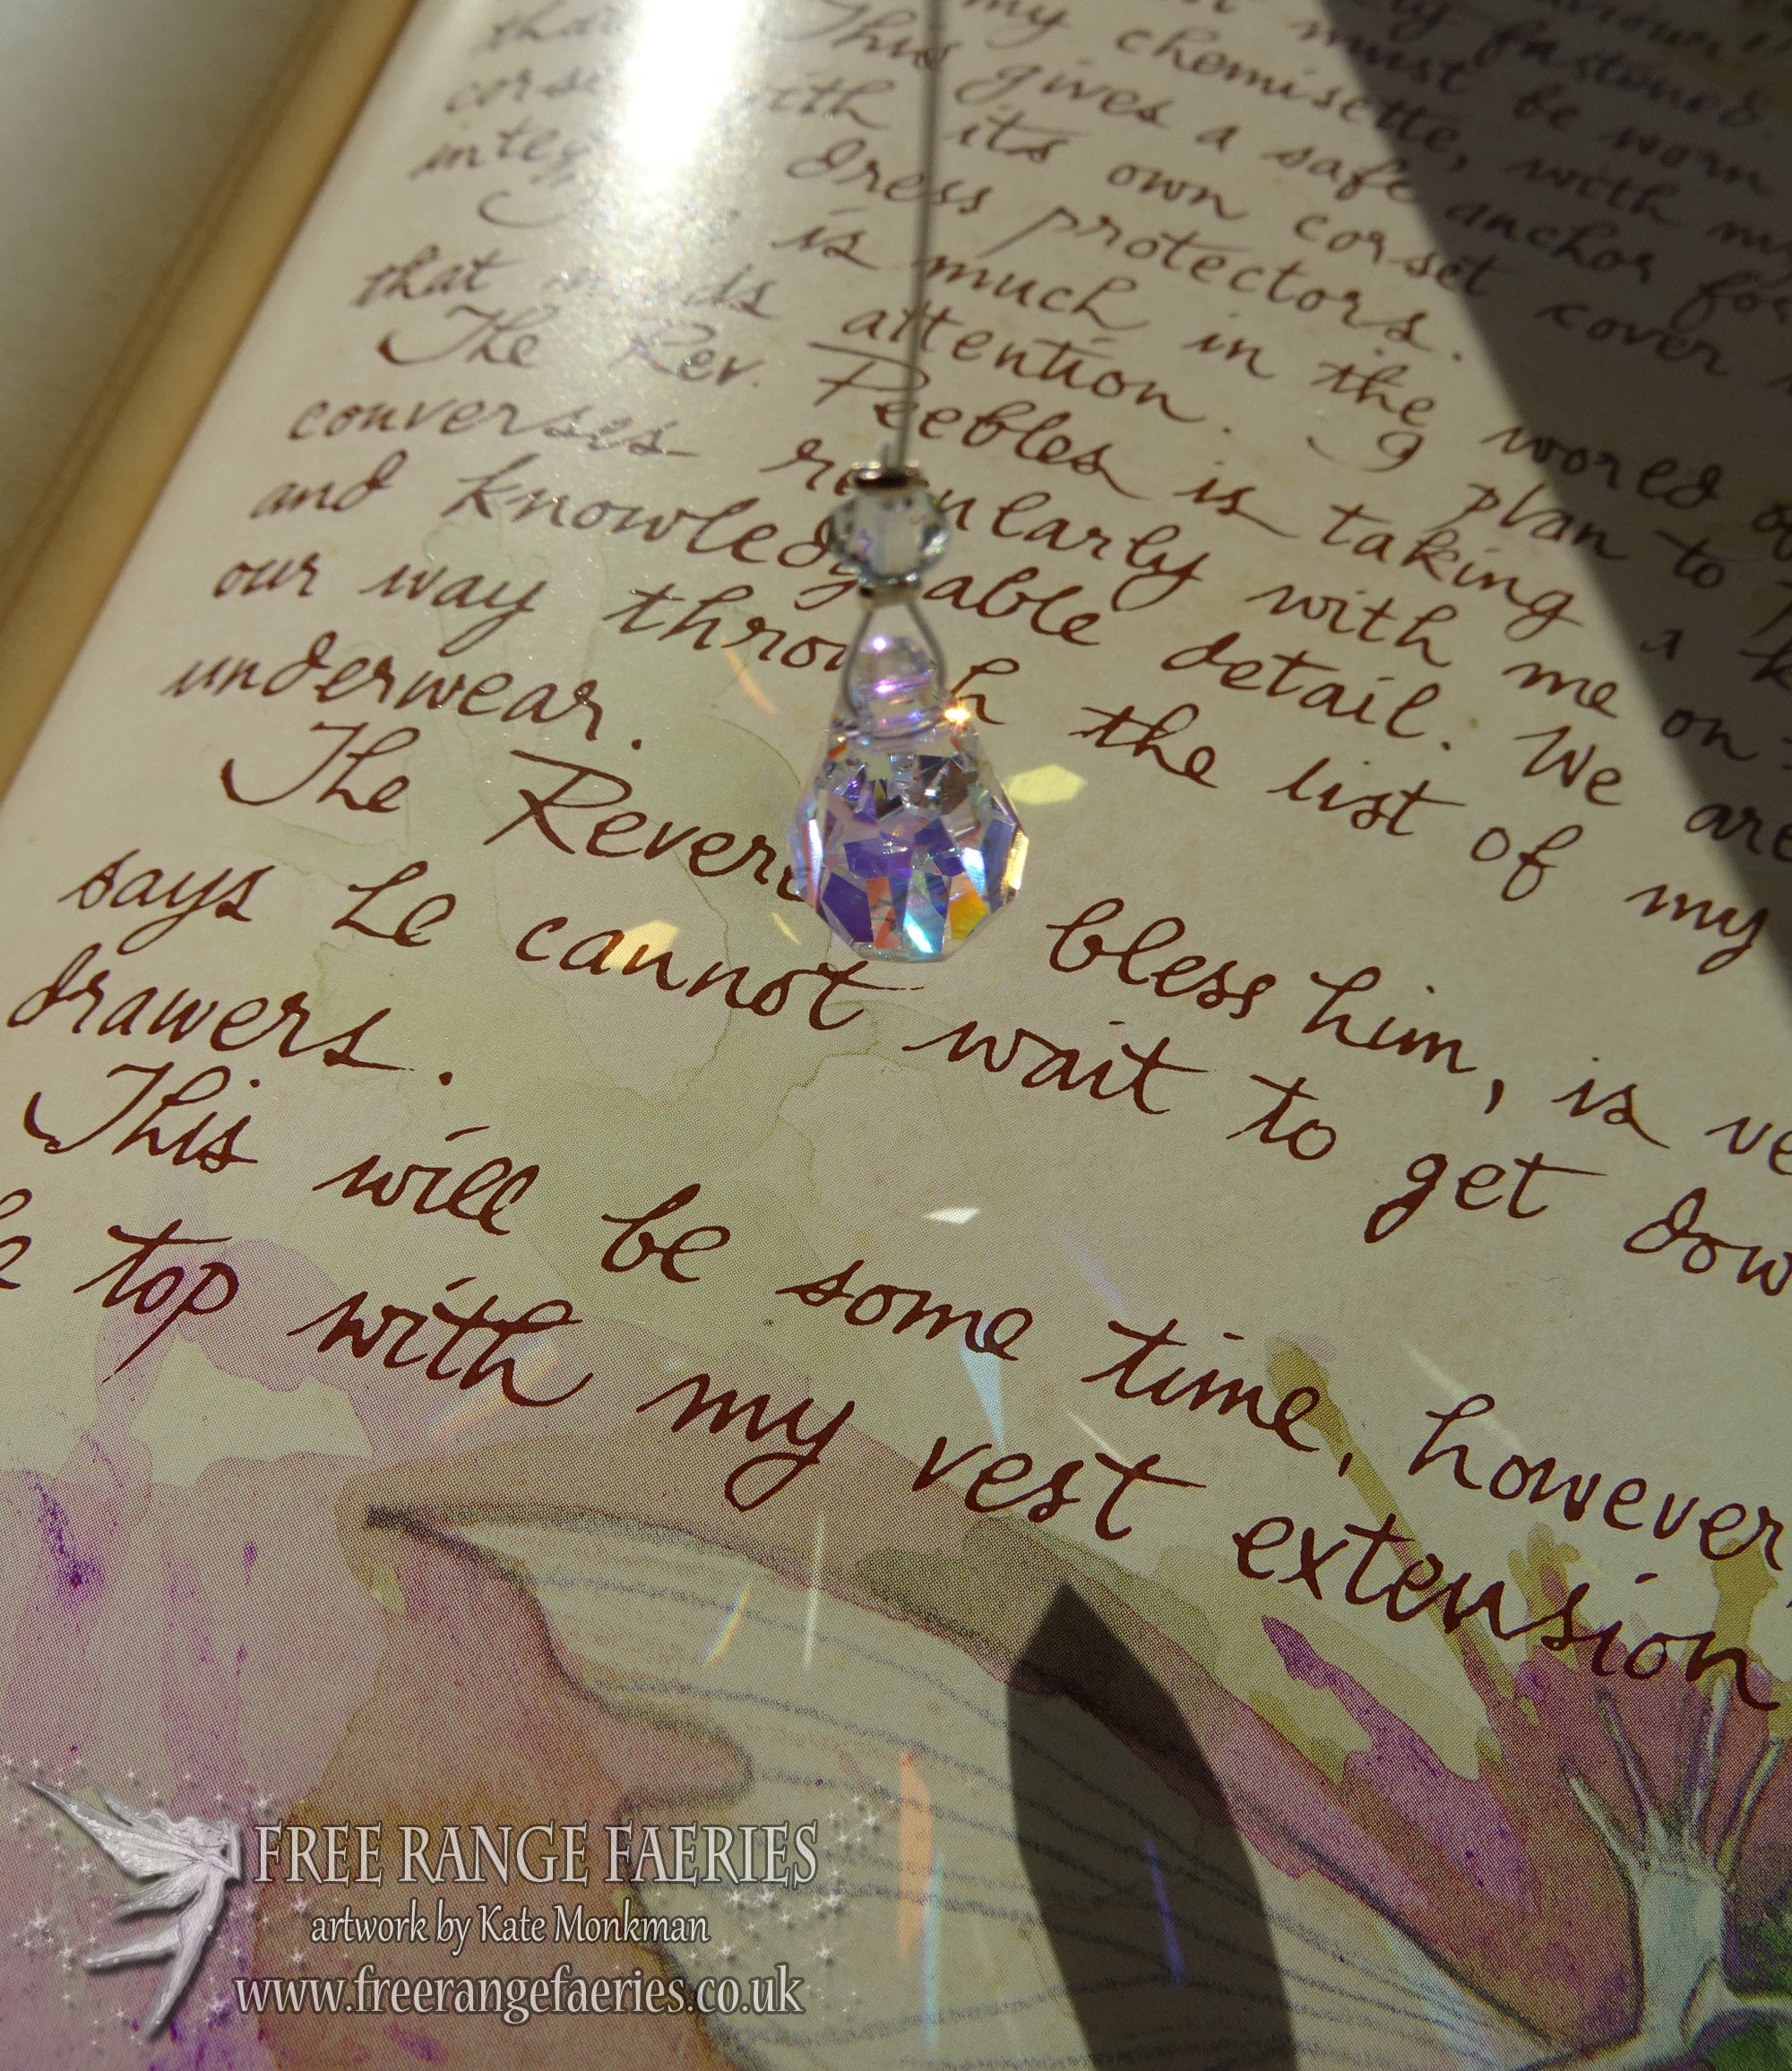 must be worn
my chemisette, with my
This gives a safe anchor for
with its own corset cover
dress protectors.
is much in the world
that needs attention. I plan to
The Rev. Peebles is taking a
converses regularly with me on
and knowledgeable detail. We are
our way through the list of my
underwear.
The Reverend bless him, is
says he cannot wait to get
drawers.
This will be some time, however,
top with my vest extension
FREE RANGE FAERIES
artwork by Kate Monkman
www.freerangefaeries.co.uk